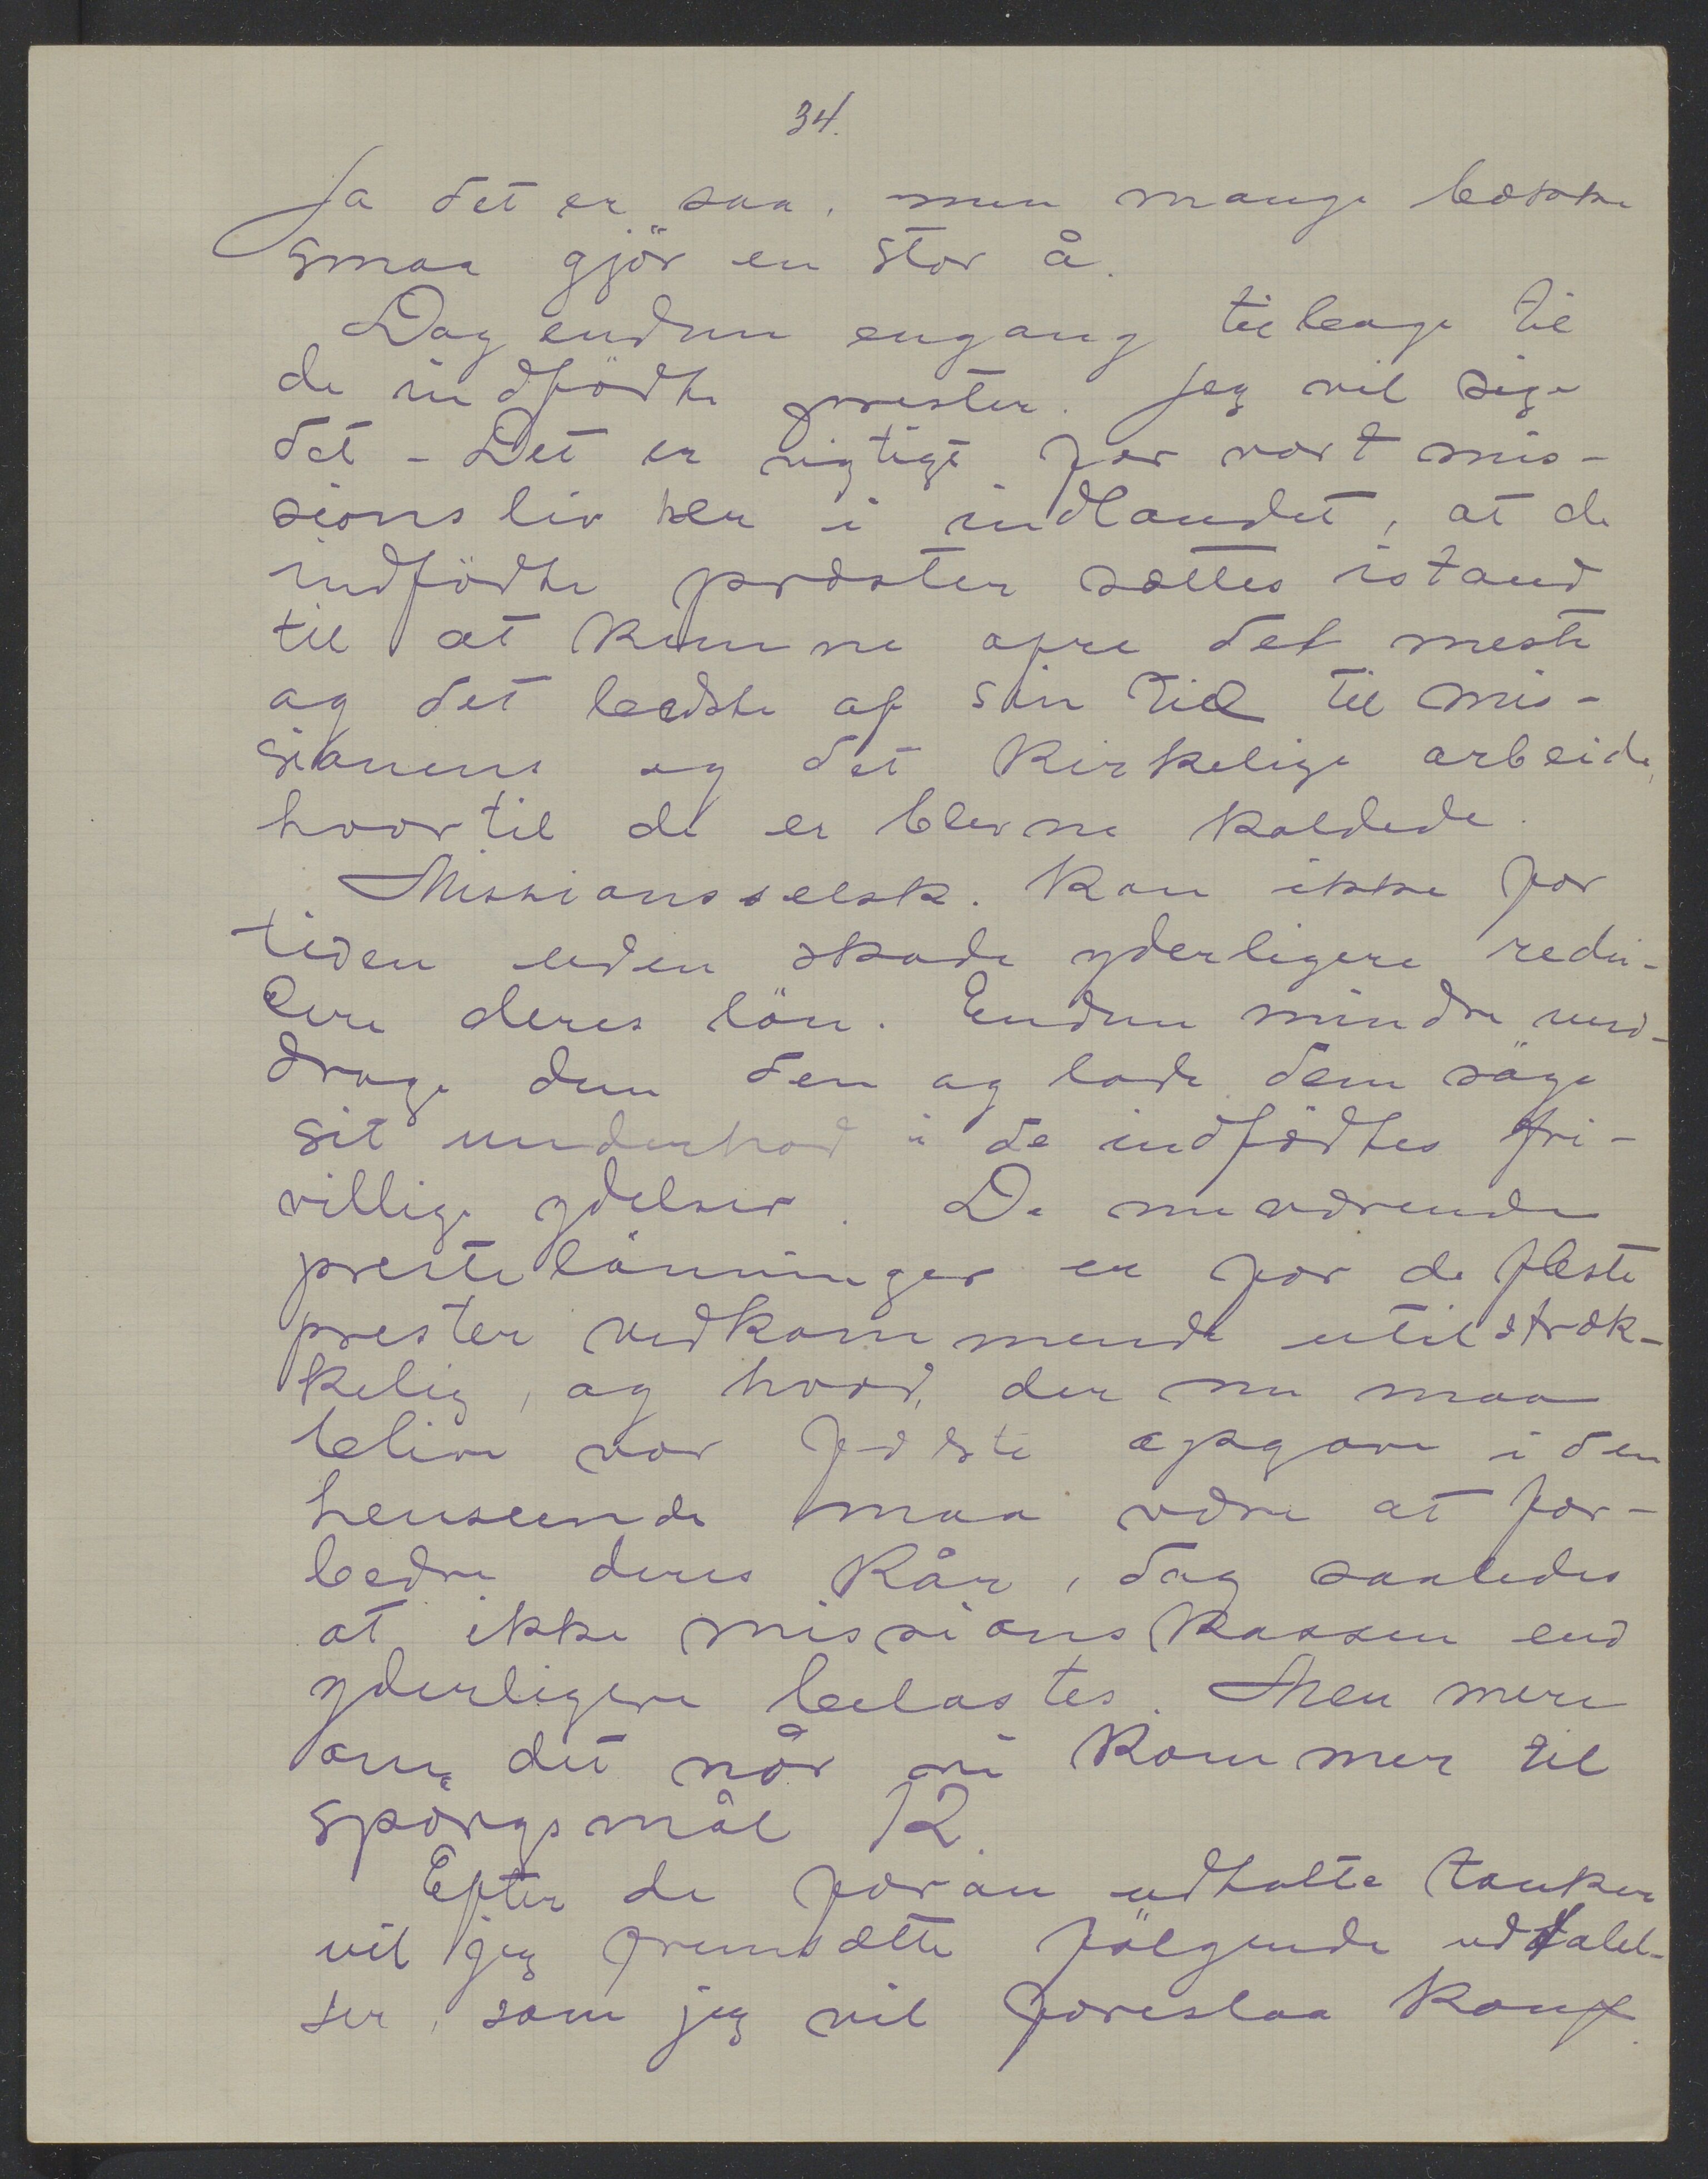 34.
Ja det er saa, men mange bække
smaa gjör en stor å.
Dog endnu engang tilbage til
de indfödte prester. Jeg vil sige
det - Det er vigtigt for vort mis-
sionsliv her i indlandet, at de
indfödte præster sættes istand
til at kunne ofre det meste
og det bedste af sin tid til mis-
sionens og det kirkelige arbeide,
hvortil de er blevne kaldede.
Missionsselsk. kan ikke for
tiden uden skade yderligere redu-
cere deres lön. Endnu mindre und-
drage dem den og lade dem söge
sit underhod i de indfödtes fri-
villige ydelser. De nuværende
prestelönninger er for de fleste
prester vedkommende utilstræk-
kelig, og hvad der nu maa
blive vor förste opgave i den
henseende maa være at for-
bedre deres kår, dog saaledes
at ikke missionskassen end
yderligere belastes. Men mere
om det når vi kommer til
spörgsmål 12.
Efter de foran udtalte tanker
vil jeg fremsætte fölgende udtalel-
ser, som jeg vil foreslaa konf.